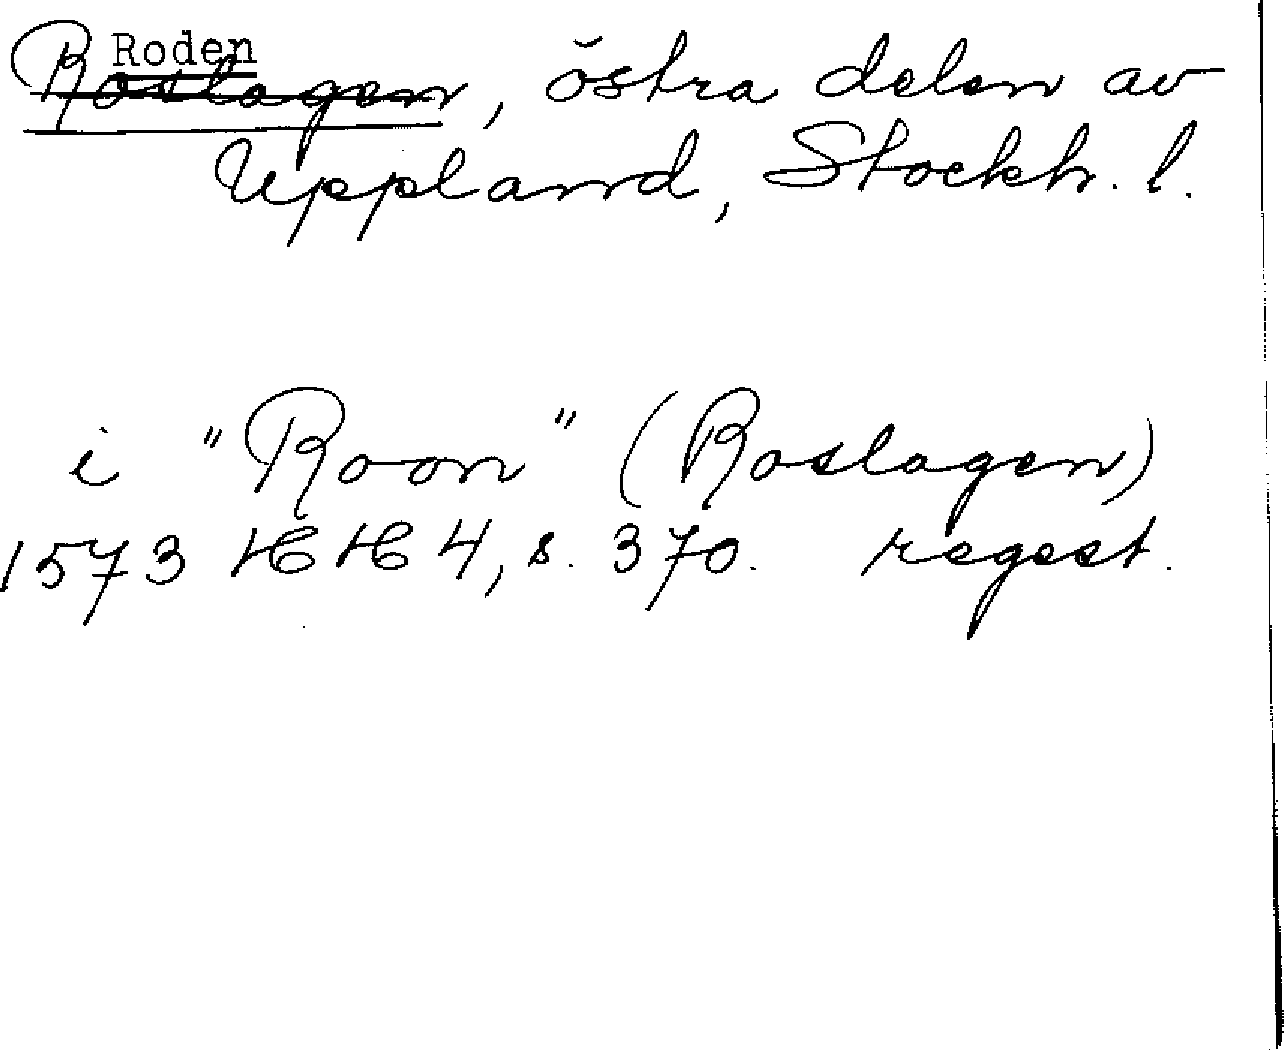 Roden
Roslagen, östra delen av
Uppland, Stockh. l.
i "Roon" (Roslagen)
1573 HH 4, s. 370. regest.